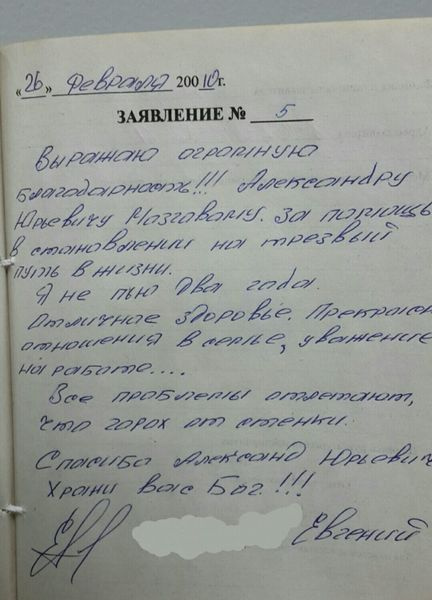 «26» Февраля 200 10 г.
ЗАЯВЛЕНИЕ № 5
Выражаю огромную
благодарность!!! Александру
Юрьевичу Мозговому. За помощь
в становлении на трезвый
путь в жизни.
Я не пью два года.
Отличное здоровье. Прекрасн
отношения в семье, уважение
на работе....
Все проблемы отлетают,
что горох от стенки.
Спасибо Александ Юрьевич
Храни вас Бог!!!
Евгений